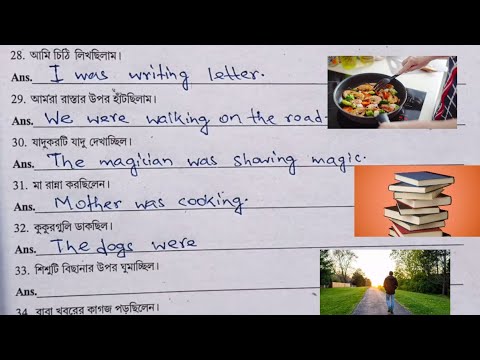 28. আমি চিঠি লিখছিলাম।
Ans. I was writing letter.
29. আমরা রাস্তার উপর হাঁটছিলাম।
Ans. We were walking on the road.
30. যাদুকরটি যাদু দেখাচ্ছিল।
Ans. The magician was showing magic.
31. মা রান্না করছিলেন।
Ans. Mother was cooking.
32. কুকুরগুলি ডাকছিল।
Ans. The dogs were
33. শিশুটি বিছানার উপর ঘুমাচ্ছিল।
Ans.
34. বাবা খবরের কাগজ পড়ছিলেন।